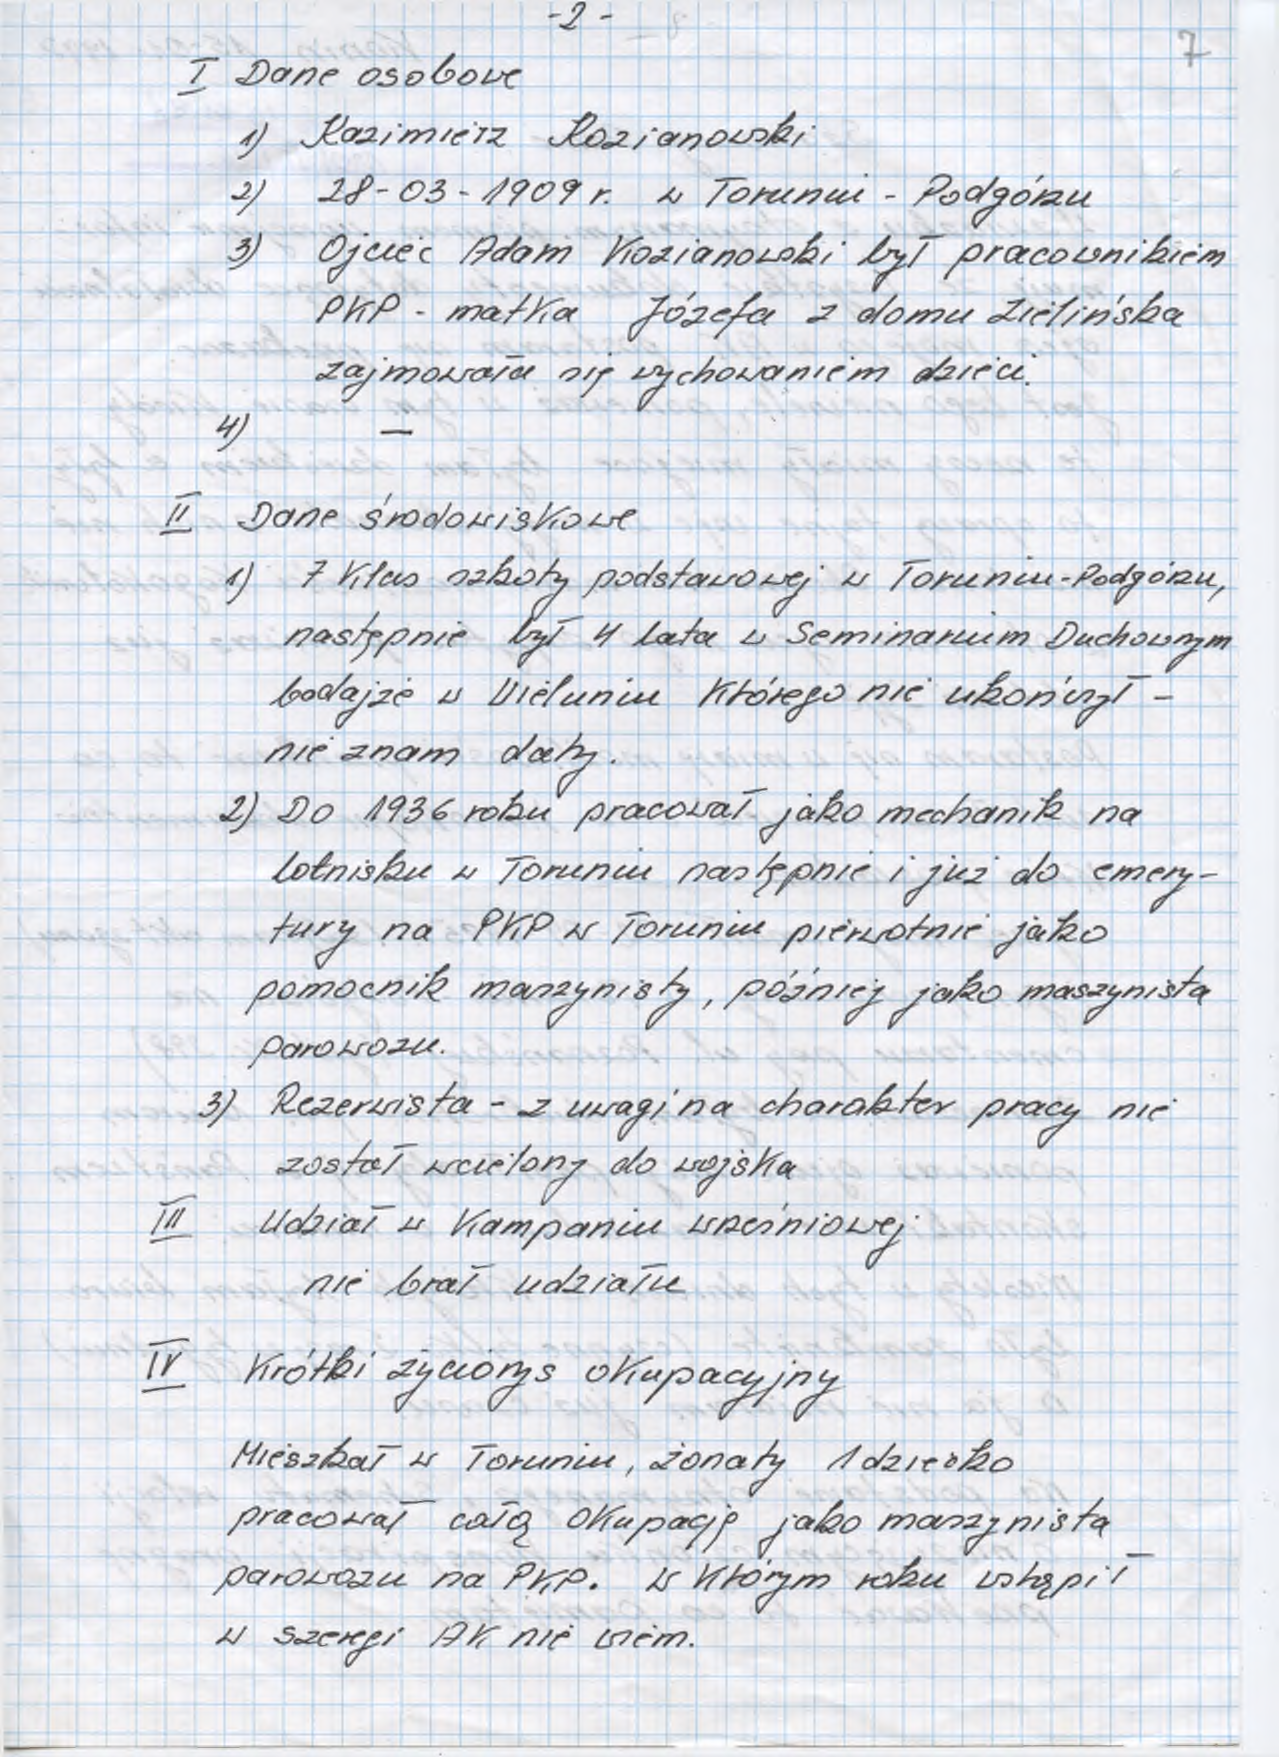 -2-
7
I Dane osobowe
1) Kazimierz Kozianowski
2) 28-03-1909 r. w Toruniu - Podgórzu
3) Ojciec Adam Kozianowski był pracownikiem
PKP - matka Józefa z domu Zielińska
zajmowała się wychowaniem dzieci.
4) —
II Dane środowiskowe
1) 7 klas szkoły podstawowej w Toruniu-Podgórzu,
następnie był 4 lata w Seminarium Duchownym
bodajże w Wieluniu którego nie ukończył -
nie znam daty.
2) Do 1936 roku pracował jako mechanik na
lotnisku w Toruniu następnie i już do emery-
tury na PKP w Toruniu pierwotnie jako
pomocnik maszynisty, później jako maszynista
parowozu.
3) Rezerwista - z uwagi na charakter pracy nie
został wcielony do wojska
III Udział w Kampaniu wrześniowej
nie brał udziału
IV Krótki życiorys okupacyjny
Mieszkał w Toruniu, żonaty 1 dziecko
pracował całą okupację jako maszynista
parowozu na PKP. w którym roku wstąpił
w szeregi AK nie wiem.